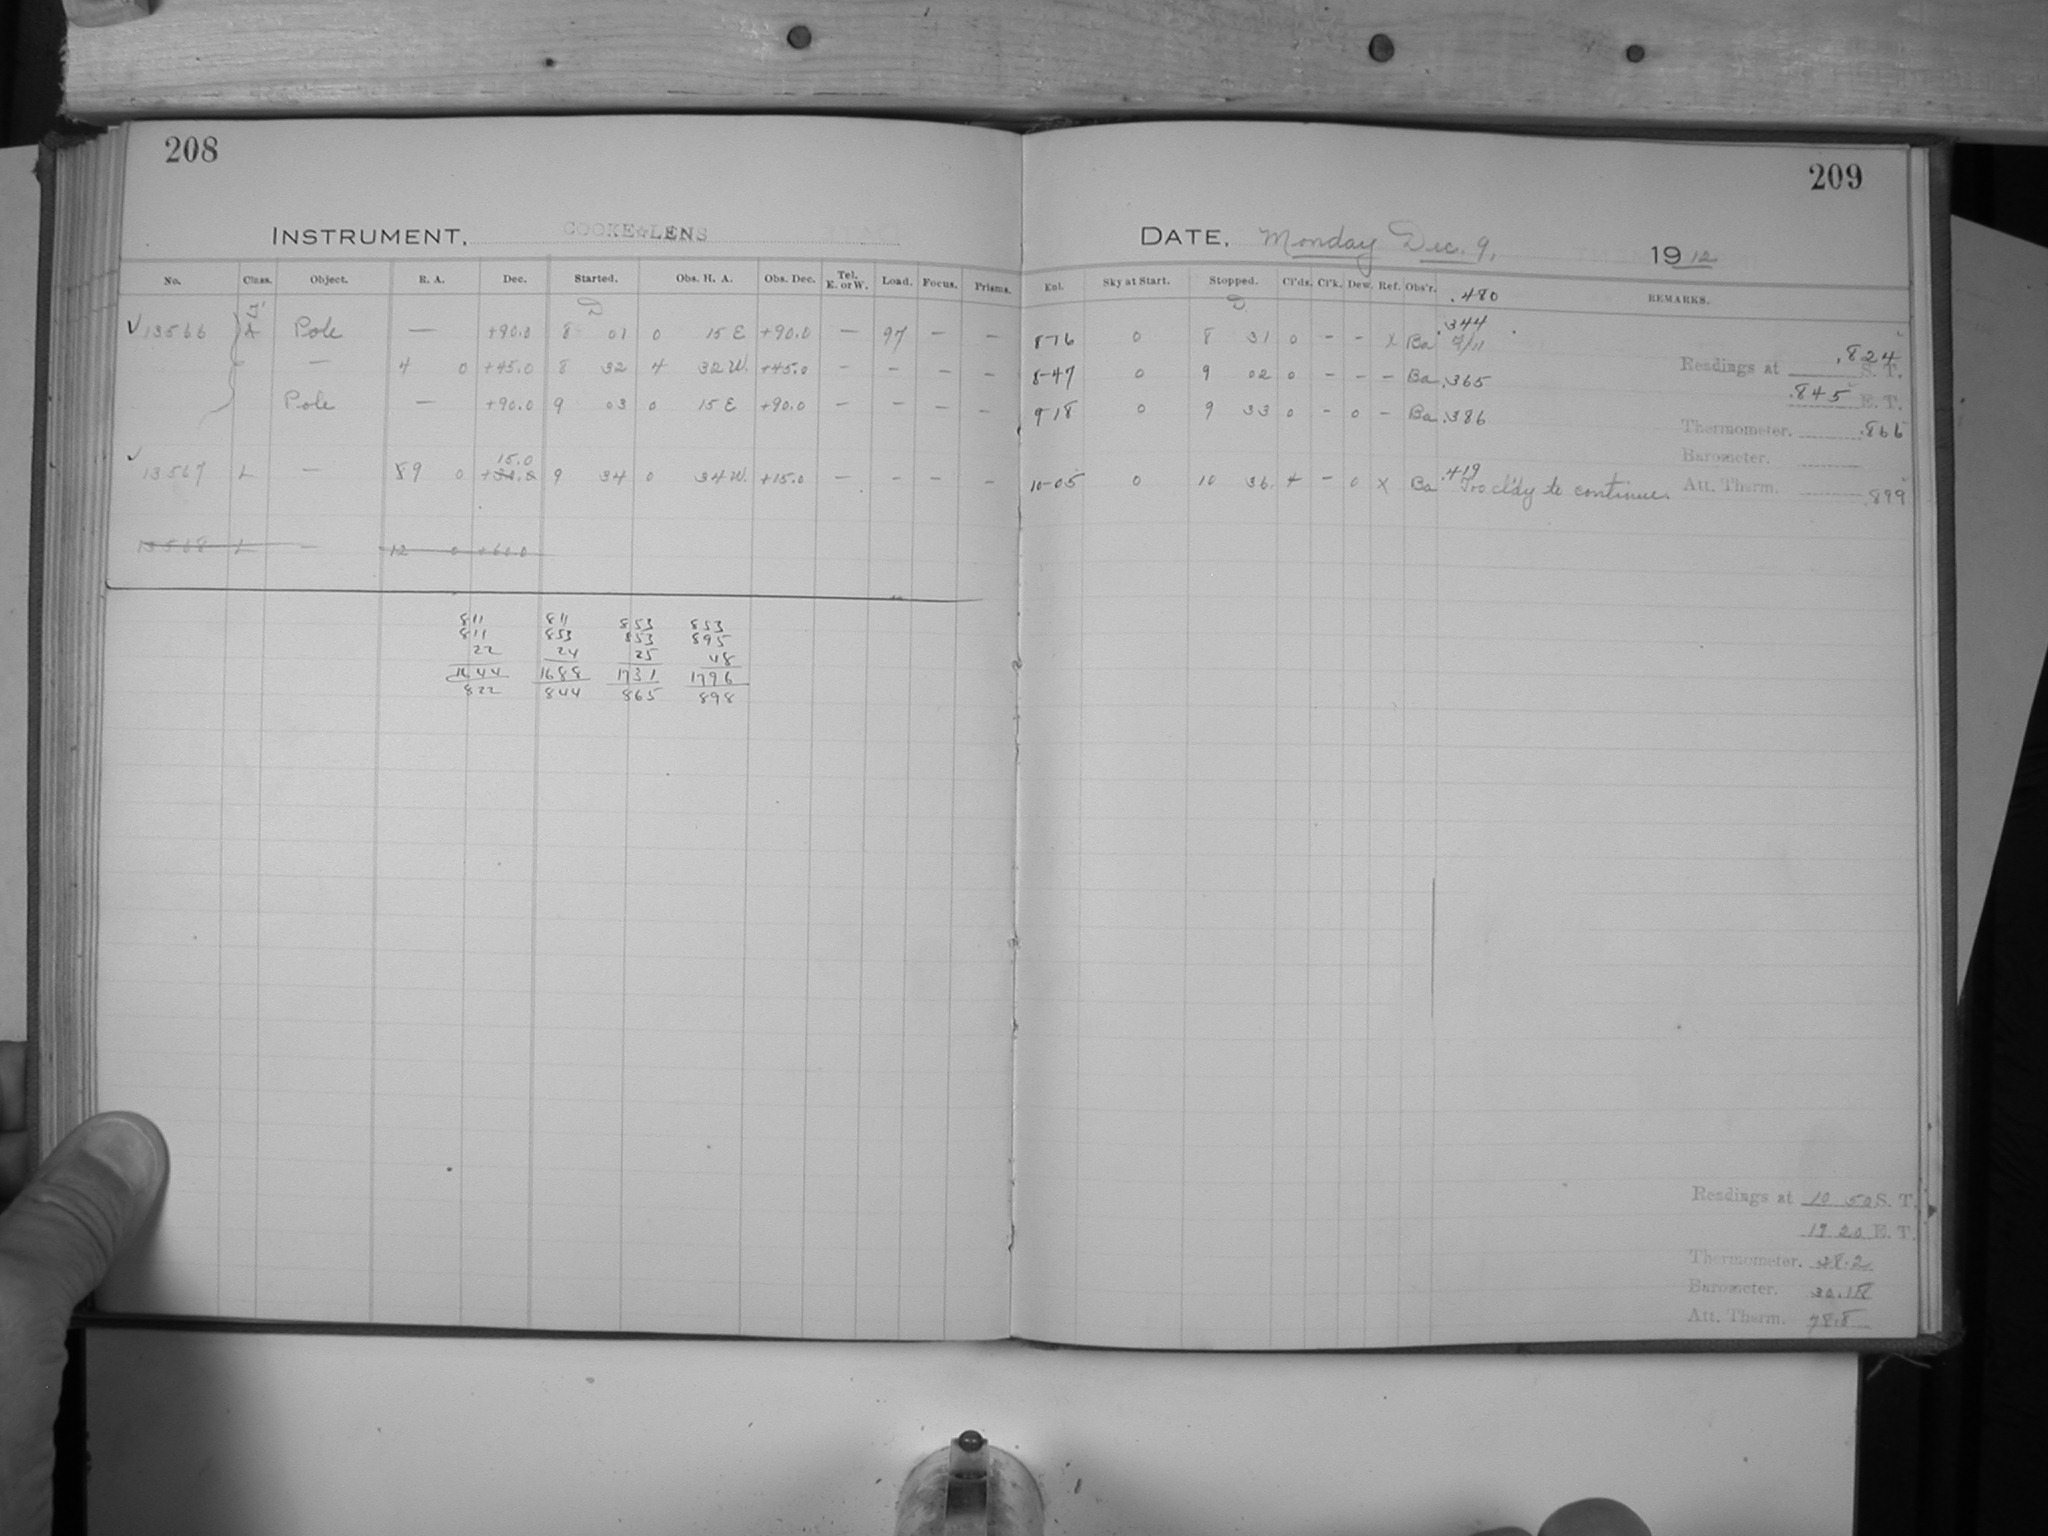 208
INSTRUMENT, COOKE LENS
No. Class. Object. R. A. Dec. Started. Obs. H. A. Obs. Dec. Tel. E. or W. Load. Focus. Prisms.
D
✓ 13566 L Pole — +90.0 8 01 0 15 E +90.0 — 97 — —
— 4 0 +45.0 8 32 4 32 W. +45.0 — — — —
Pole — +90.0 9 03 0 15 E +90.0 — — — —
15.0
✓ 13567 L — 0 9 34 0 34 W. +15.0 — — — —
13568 L — 12 0 +60.0
811 811 853 853
811 853 853 895
22 24 25 48
1644 1688 1731 1796
822 844 865 898
209
DATE, Monday Dec. 9, 1912
Exl. Sky at Start. Stopped. Cl'ds. Cl'k. Dew. Ref. Obs'r. REMARKS.
.480
D
.344
8-16 0 8 31 0 — — x Ba 7/11
.824
Readings at S. T.
8-47 0 9 02 0 — — — Ba .365
.845 E. T.
9-18 0 9 33 0 — 0 — Ba .386
Thermometer. .866
Barometer.
.419
10-05 0 10 36 + — 0 x Ba Too cl'dy to continue.
Att. Therm. .899
Readings at 10 50 S. T.
17 20 E. T.
Thermometer. 38.2
Barometer. 30.18
Att. Therm. 48.8